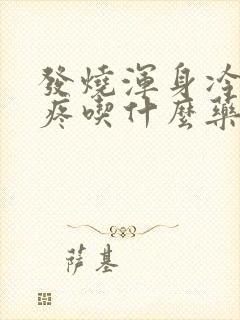 發燒渾身冷
疼喫什麼藥
萨基